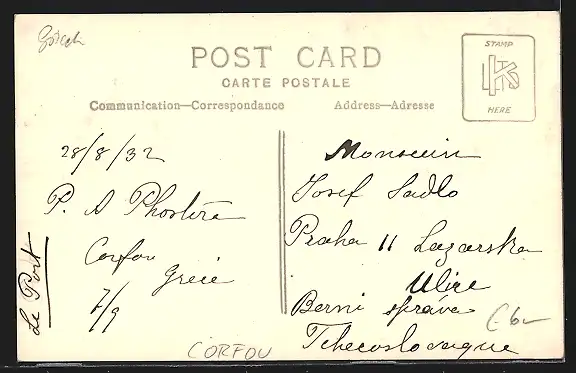 POST CARD
CARTE POSTALE
Communication—Correspondance
Address—Adresse
STAMP
HERE
28/8/32
P. A Phostira
Corfou
Grèce
7/9
Le Port
CORFOU
Monsieur
Josef Sadlo
Praha II Lazarska
Ulice
Berni správa
Tchecoslovaquie